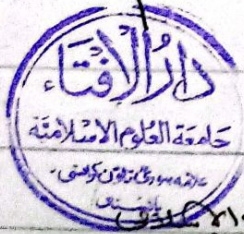 دارالافتاء
جامعة العلوم الاسلامية
علامه بنوری ٹاؤن کراچی